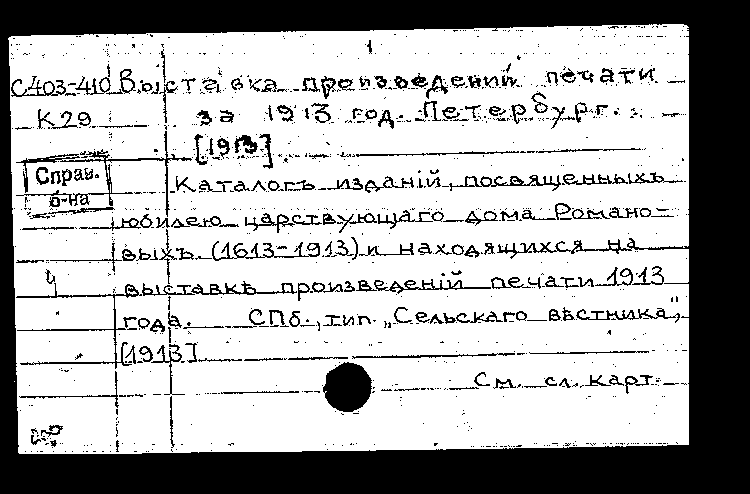 1
С403-410 Выставка произведений печати
К29 за 1913 год. Петербург.
[1913]
Справ.
б-на
Каталогъ изданій, посвященныхъ
юбилею царствующаго дома Романо-
выхъ. (1613-1913) и находящихся на
4
выставкѣ произведеній печати 1913
года. СПб., тип. „Сельскаго вѣстника",
[1913]
См. сл. карт.